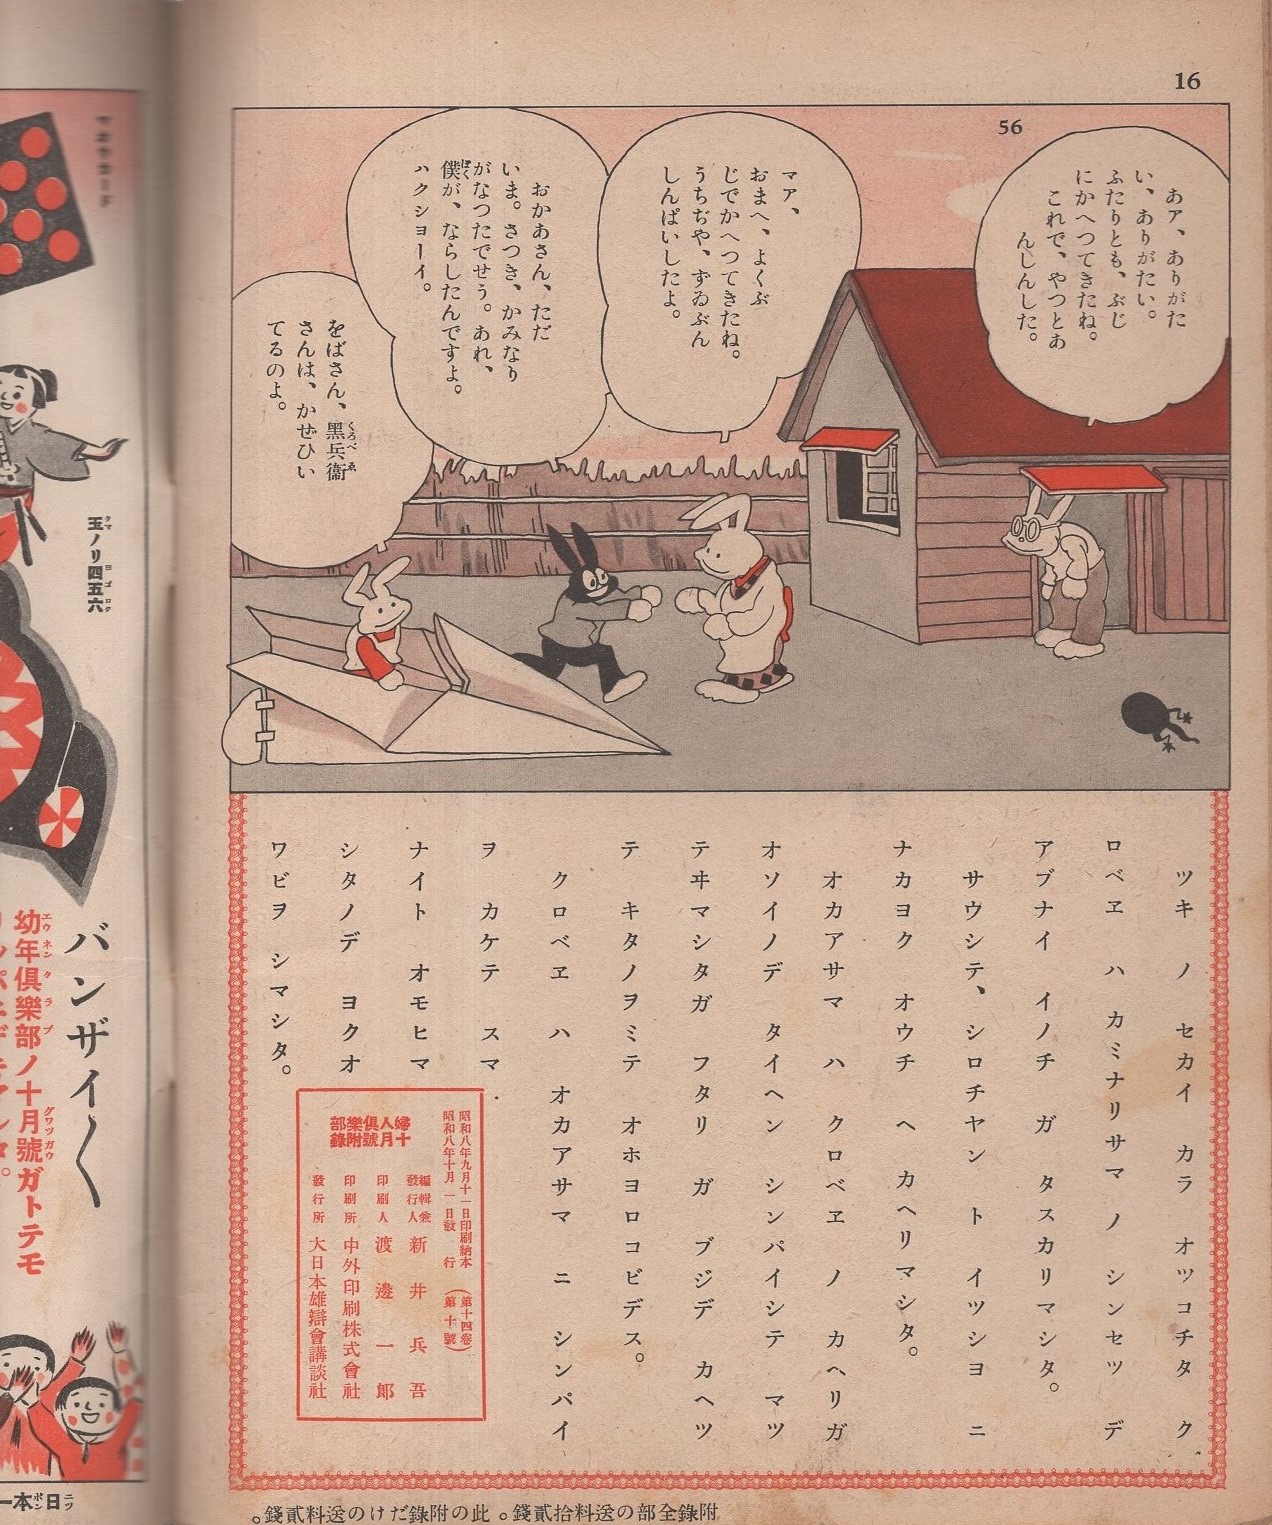 16
56
あア、ありがた
い、ありがたい。
ふたりとも、ぶじ
にかへつてきたね。
これで、やつとあ
んしんした。
マア、
おまへ、よくぶ
じでかへつてきたね。
うちぢや、ずゐぶん
しんぱいしたよ。
おかあさん、ただ
いま。さつき、かみなり
がなつたでせう。あれ、
僕が、ならしたんですよ。
ぼく
ハクショーイ。
をばさん、黑兵衞
くろべゑ
さんは、かぜひい
てるのよ。
ツキ ノ セカイ カラ オツコチタ ク
ロベヱ ハ カミナリサマ ノ シンセツ デ
アブナイ イノチ ガ タスカリマシタ。
サウシテ、シロチヤン ト イツシヨ ニ
ナカヨク オウチ ヘ カヘリマシタ。
オカアサマ ハ クロベヱ ノ カヘリガ
オソイノデ タイヘン シンパイシテ マツ
テヰマシタガ フタリ ガ ブジデ カヘツ
テ キタノヲミテ オホヨロコビデス。
クロベヱ ハ オカアサマ ニ シンパイ
ヲ カケテ スマ
ナイト オモヒマ
シタノデ ヨクオ
ワビヲ シマシタ。
昭和八年九月十一日印刷納本(第十四卷)
昭和八年十月一日發行(第十號)
婦人倶樂部
十月號附錄
編輯兼發行人 新井兵吾
印刷人 渡邊一郎
印刷所 中外印刷株式會社
發行所 大日本雄辯會講談社
附錄全部の送料拾貳錢。此の附錄だけの送料貳錢。
玉ノリ四五六
タマ ヨゴロク
バンザイ〱
幼年倶樂部ノ十月號ガトテモ
エウネンクラブ グワツガウ
日本一
ニツポン